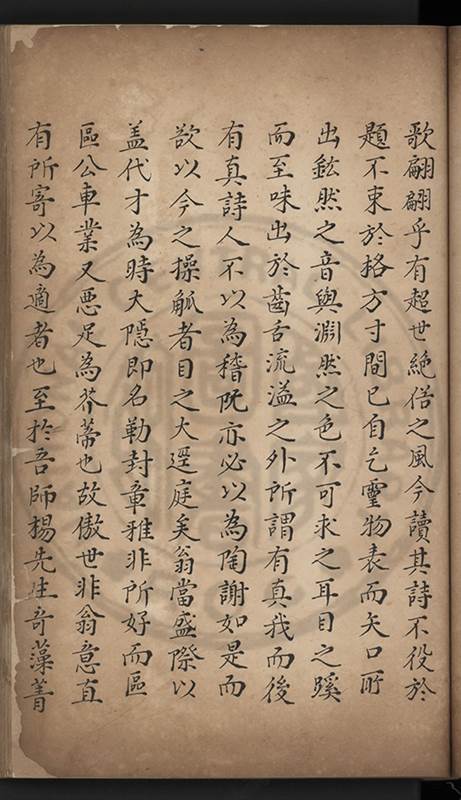 歌翩翩乎有超世絶俗之風今讀其詩不役於
題不束於格方寸間已自乞靈物表而矢口所
出鈜然之音與淵然之色不可求之耳目之蹊
而至味出於齒舌流溢之外所謂有真我而後
有真詩人不以為稽阮亦必以為陶謝如是而
欲以今之操觚者目之大逕庭矣翁當盛際以
盖代才為時大隱即名勒封章雅非所好而區
區公車業又悪足為芥蔕也故傲世非翁意直
有所寄以為適者也至於吾師楊先生奇藻菁